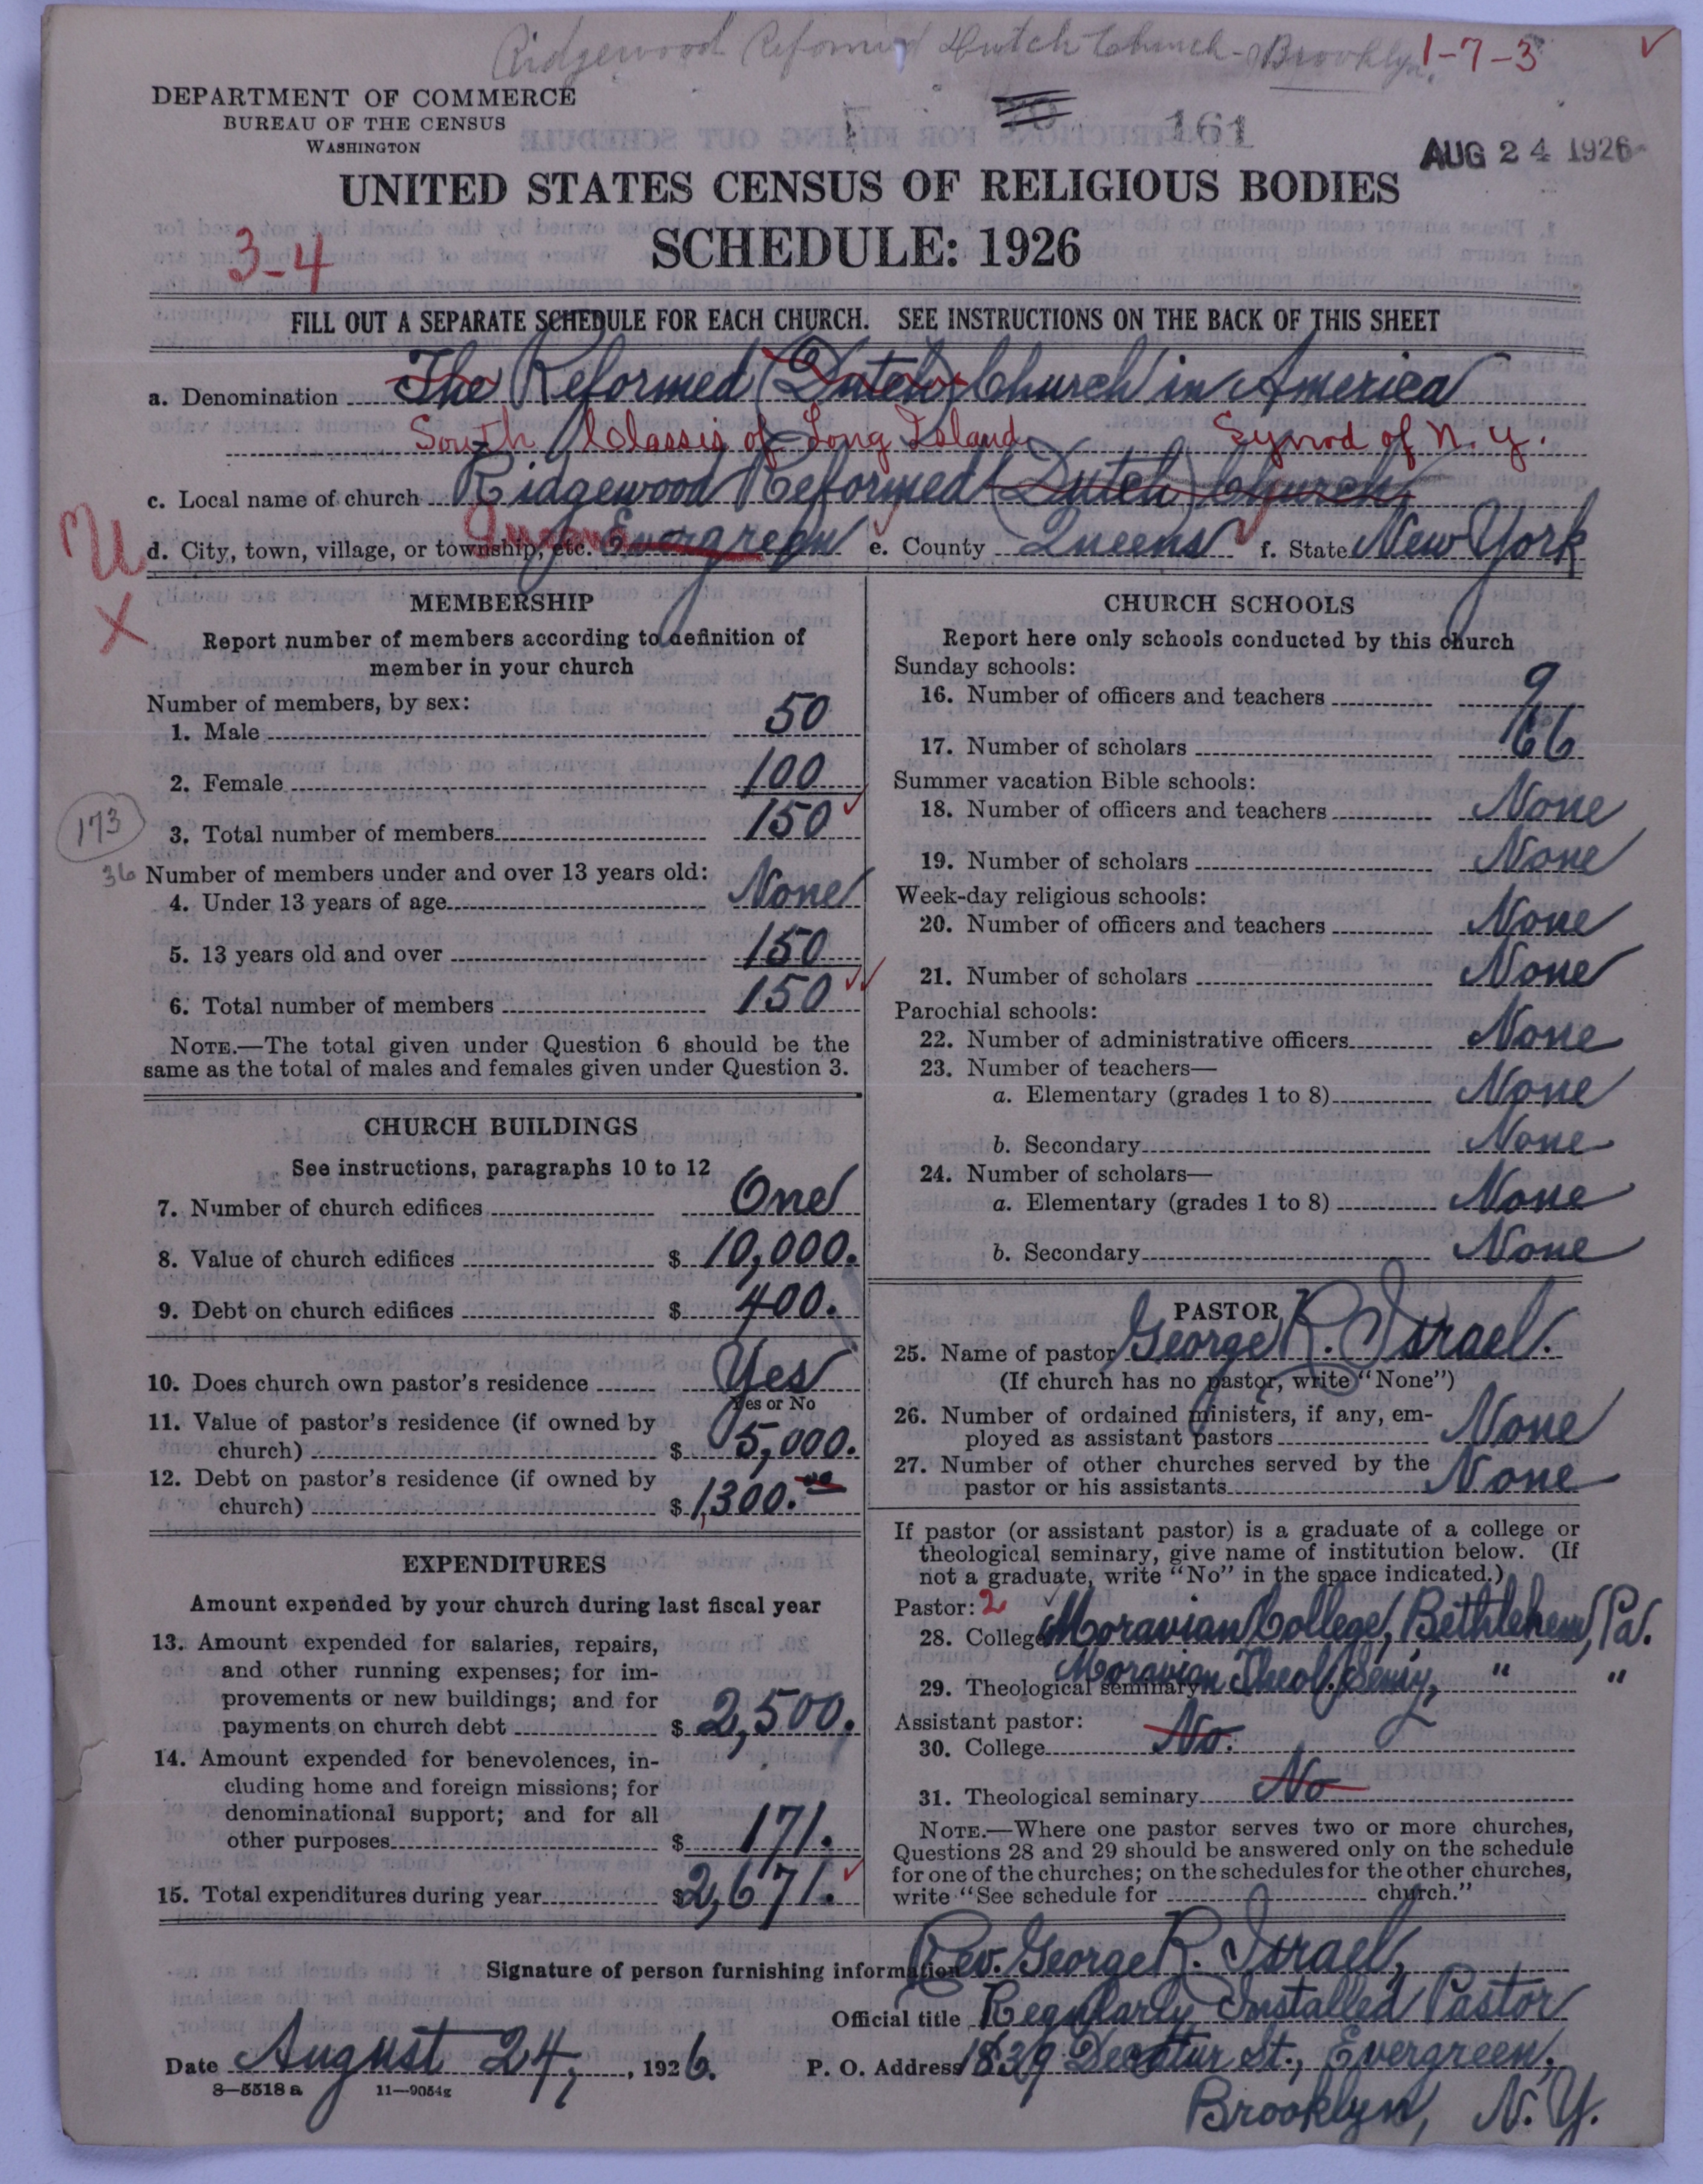 Ridgewood Reformed Dutch Church - Brooklyn. 1-7-3
DEPARTMENT OF COMMERCE
BUREAU OF THE CENSUS
WASHINGTON
161
AUG 24 1926
UNITED STATES CENSUS OF RELIGIOUS BODIES
SCHEDULE: 1926
3-4
FILL OUT A SEPARATE SCHEDULE FOR EACH CHURCH. SEE INSTRUCTIONS ON THE BACK OF THIS SHEET
a. Denomination The Reformed (Dutch) Church in America
South Classis of Long Island. Synod of N.Y.
c. Local name of church Ridgewood Reformed (Dutch) Church
d. City, town, village, or township, etc. Queens Evergreen e. County Queens f. State New York
MEMBERSHIP
Report number of members according to definition of
member in your church
Number of members, by sex:
1. Male 50
2. Female 100
173
3. Total number of members 150
36
Number of members under and over 13 years old:
4. Under 13 years of age None
5. 13 years old and over 150
6. Total number of members 150
NOTE.—The total given under Question 6 should be the
same as the total of males and females given under Question 3.
CHURCH BUILDINGS
See instructions, paragraphs 10 to 12
7. Number of church edifices One
8. Value of church edifices $ 10,000.
9. Debt on church edifices $ 400.
10. Does church own pastor's residence Yes
Yes or No
11. Value of pastor's residence (if owned by
church) $ 5,000.
12. Debt on pastor's residence (if owned by
church) $ 1,300.00
EXPENDITURES
Amount expended by your church during last fiscal year
13. Amount expended for salaries, repairs,
and other running expenses; for im-
provements or new buildings; and for
payments on church debt $ 2,500.
14. Amount expended for benevolences, in-
cluding home and foreign missions; for
denominational support; and for all
other purposes $ 171.
15. Total expenditures during year $2,671.
CHURCH SCHOOLS
Report here only schools conducted by this church
Sunday schools:
16. Number of officers and teachers 9
17. Number of scholars 66
Summer vacation Bible schools:
18. Number of officers and teachers None
19. Number of scholars None
Week-day religious schools:
20. Number of officers and teachers None
21. Number of scholars None
Parochial schools:
22. Number of administrative officers None
23. Number of teachers—
a. Elementary (grades 1 to 8) None
b. Secondary None
24. Number of scholars—
a. Elementary (grades 1 to 8) None
b. Secondary None
PASTOR
25. Name of pastor George R. Israel.
(If church has no pastor, write "None")
26. Number of ordained ministers, if any, em-
ployed as assistant pastors None
27. Number of other churches served by the
pastor or his assistants None
If pastor (or assistant pastor) is a graduate of a college or
theological seminary, give name of institution below. (If
not a graduate, write "No" in the space indicated.)
Pastor: 2
28. College Moravian College, Bethlehem, Pa.
29. Theological seminary Moravian Theol. Sem'y, " "
Assistant pastor:
30. College No.
31. Theological seminary No
NOTE.—Where one pastor serves two or more churches,
Questions 28 and 29 should be answered only on the schedule
for one of the churches; on the schedules for the other churches,
write "See schedule for church."
Signature of person furnishing information Rev. George R. Israel,
Official title Regularly Installed Pastor
Date August 24, 1926. P. O. Address 1839 Decatur St., Evergreen,
8—5518 a 11—9054g
Brooklyn, N.Y.